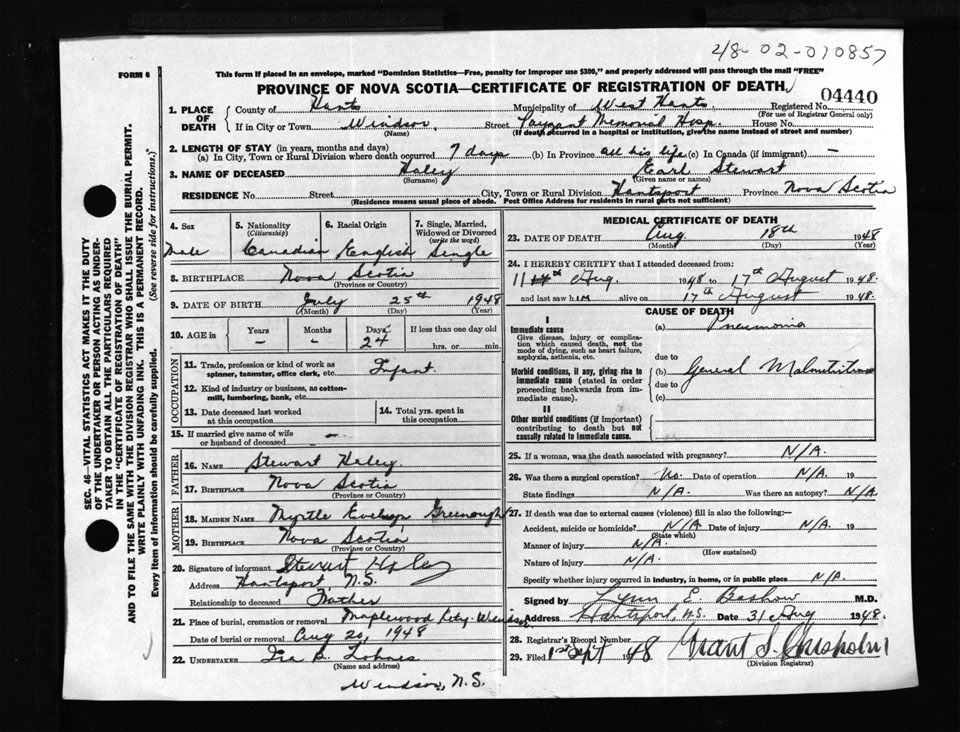 48-02-010857
FORM 6
This form if placed in an envelope, marked "Dominion Statistics—Free, penalty for improper use $300," and properly addressed will pass through the mail "FREE"
PROVINCE OF NOVA SCOTIA—CERTIFICATE OF REGISTRATION OF DEATH
04440
1. PLACE OF DEATH
County of Hants Municipality of West Hants Registered No.
(For use of Registrar General only)
If in City or Town Windsor Street Payzant Memorial Hosp. House No.
(Name) (If death occurred in a hospital or institution, give the name instead of street and number)
2. LENGTH OF STAY (in years, months and days)
(a) In City, Town or Rural Division where death occurred 7 days (b) In Province all his life (c) In Canada (if immigrant) —
3. NAME OF DECEASED Haley Earl Stewart
(Surname) (Given name or names)
RESIDENCE No. Street City, Town or Rural Division Hantsport Province Nova Scotia
(Residence means usual place of abode. Post Office Address for residents in rural parts not sufficient)
4. Sex
Male
5. Nationality
(Citizenship)
Canadian
6. Racial Origin
English
7. Single, Married, Widowed or Divorced
(write the word)
Single
8. BIRTHPLACE Nova Scotia
(Province or Country)
9. DATE OF BIRTH July 25th 1948
(Month) (Day) (Year)
10. AGE in
Years Months Days If less than one day old
— — 24 hrs. or min.
OCCUPATION
11. Trade, profession or kind of work as spinner, teamster, office clerk, etc. Infant
12. Kind of industry or business, as cotton-mill, lumbering, bank, etc.
13. Date deceased last worked at this occupation
14. Total yrs. spent in this occupation
15. If married give name of wife or husband of deceased —
FATHER
16. NAME Stewart Haley
17. BIRTHPLACE Nova Scotia
(Province or Country)
MOTHER
18. MAIDEN NAME Myrtle Evelyn Greenough
19. BIRTHPLACE Nova Scotia
(Province or Country)
20. Signature of informant Stewart Haley
Address Hantsport N.S.
Relationship to deceased Father
21. Place of burial, cremation or removal Maplewood Windsor
Date of burial or removal Aug 20, 1948
22. UNDERTAKER Ira B. Lohnes
(Name and address)
Windsor, N.S.
MEDICAL CERTIFICATE OF DEATH
23. DATE OF DEATH Aug. 18th 1948
(Month) (Day) (Year)
24. I HEREBY CERTIFY that I attended deceased from:
11th Aug. 1948 to 17th August 1948
and last saw him alive on 17th August 1948
CAUSE OF DEATH
I
Immediate cause
Give disease, injury or complication which caused death, not the mode of dying, such as heart failure, asphyxia, asthenia, etc.
(a) Pneumonia
due to
Morbid conditions, if any, giving rise to immediate cause (stated in order proceeding backwards from immediate cause).
(b) General Malnutrition
due to
(c)
II
Other morbid conditions (if important) contributing to death but not causally related to immediate cause.
25. If a woman, was the death associated with pregnancy? N/A.
26. Was there a surgical operation? No. Date of operation N/A. 19
State findings N/A. Was there an autopsy? N/A.
27. If death was due to external causes (violence) fill in also the following:—
Accident, suicide or homicide? N/A Date of injury N/A. 19
(State which)
Manner of injury N/A.
(How sustained)
Nature of injury N/A.
Specify whether injury occurred in industry, in home, or in public place N/A.
Signed by Lynn E. Bashow M.D.
Address Hantsport, N.S. Date 31 Aug 1948
28. Registrar's Record Number
29. Filed 1st Sept 1948 Grant S. Chisholm
(Division Registrar)
SEC. 46—VITAL STATISTICS ACT MAKES IT THE DUTY
OF THE UNDERTAKER OR PERSON ACTING AS UNDER-
TAKER TO OBTAIN ALL THE PARTICULARS REQUIRED
IN THE "CERTIFICATE OF REGISTRATION OF DEATH"
AND TO FILE THE SAME WITH THE DIVISION REGISTRAR WHO SHALL ISSUE THE BURIAL PERMIT.
WRITE PLAINLY WITH UNFADING INK. THIS IS A PERMANENT RECORD.
Every item of Information should be carefully supplied. (See reverse side for instructions.)